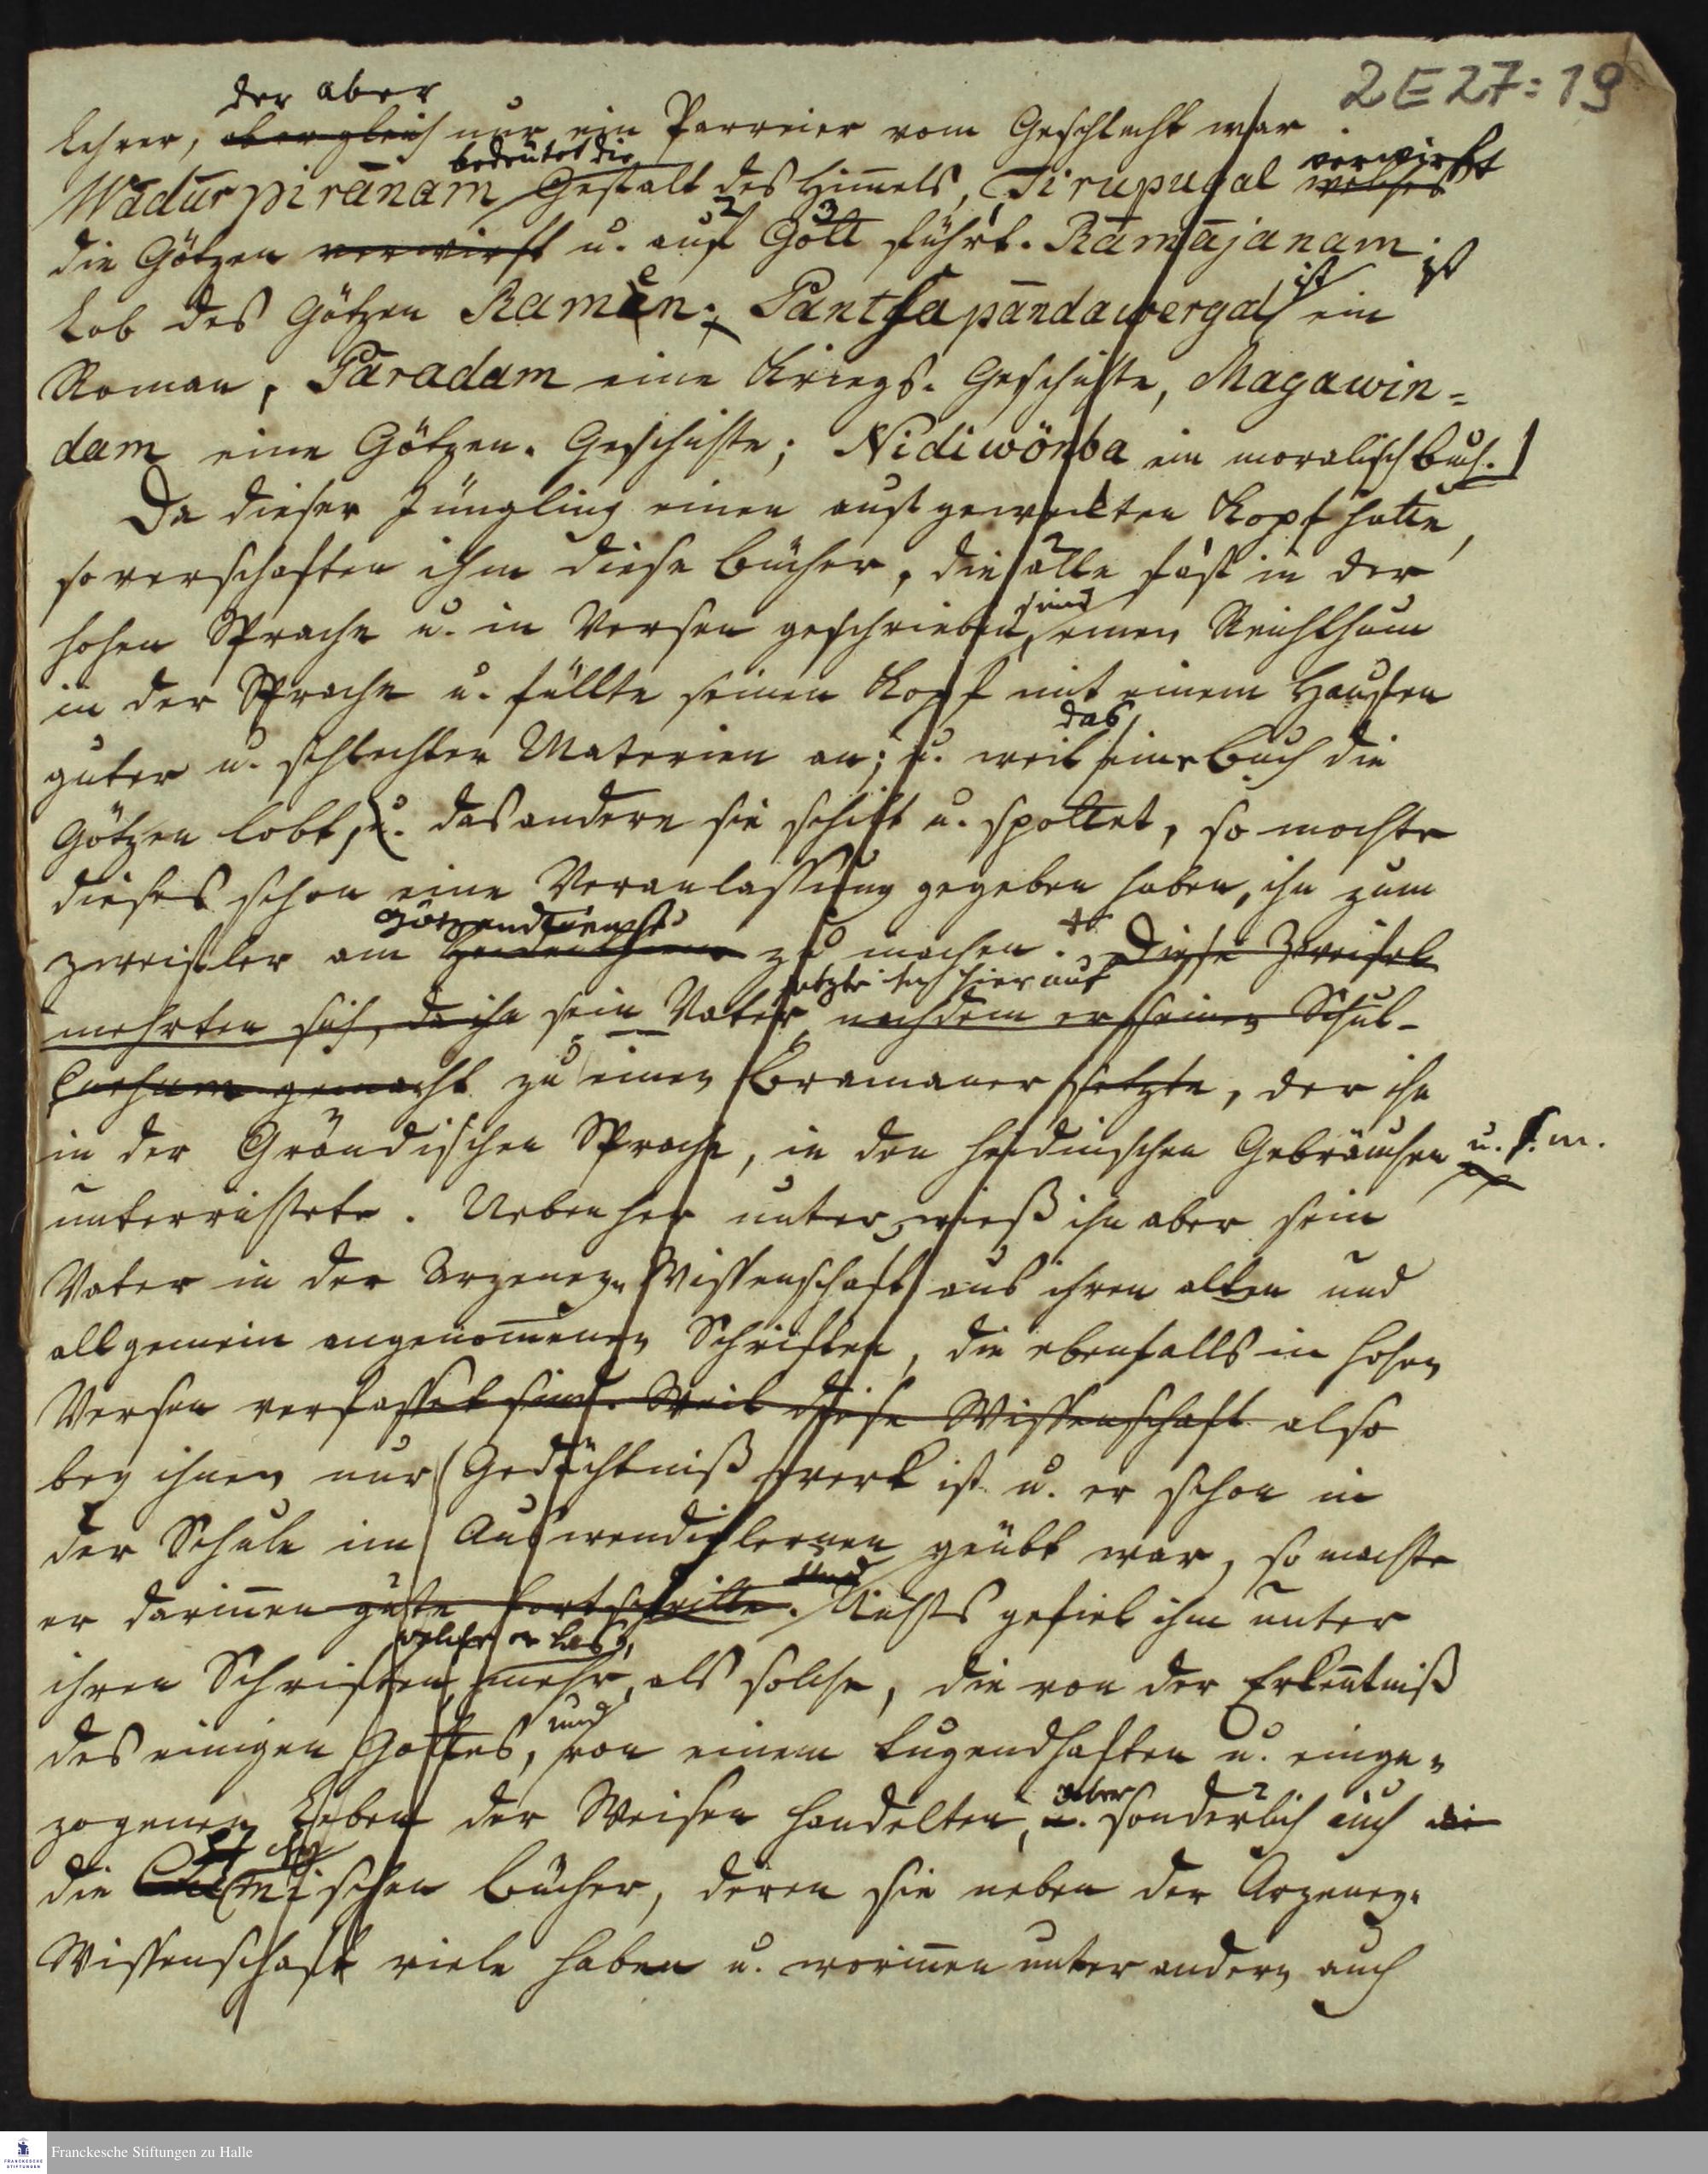 2 E 27:19
der aber
Lehrer, obergleich nur ein Parreier vom Geschlecht war.
bedeutet die verwirft
Wadurpiranam Gestalt des Him̄els, Tirupugal welches
die Götzen verwirft u. auf Gott führt. Rāmājanam ist
Lob des Götzen Ramen; Pantsapāndawergal ist ein
Roman, Paradam eine Kriegs-Geschichte, Magawin=
dam eine Götzen-Geschichte; Nidiwönba ein moralisch Buch.
Da dieser Jüngling einen aufgeweckten Kopf hatte,
so verschaften ihm diese Bücher, die alle fast in der
hohen Sprache u. in Versen geschrieben sind, einen Reichthum
in der Sprache u. füllte seinen Kopf mit einem Haufen
das
guter u. schlechter Materien an; u. weil eine Buch die
Götzen lobt, u. das andere sie schilt u. spottet, so mochte
dieses schon eine Veranlassung gegeben haben, ihn zum
Götzendienste
Zweifler am Heidenthum zu machen. Diese Zweifel
setzte ihn hierauf
mehrten sich, da ihn sein Vater nachdem er seinen Schul-
Cursum gemacht zu einen Bramaner setzte, der ihn
in der Grandischen Sprache, in den heidnischen Gebräuchen u. s. w.
unterrichtete. Nebenher unterwieß ihn aber sein
Vater in der Arzeney-Wissenschaft aus ihren alten und
allgemein angenom̄enen Schriften, die ebenfalls in hohen
Versen verfasset sind. Weil diese Wissenschaft also
bey ihnen nur Gedächtniß werk ist u. er schon in
der Schule im Auswendiglernen geübt war, so machte
und
er darin̄en gute Fortschritte. Nichts gefiel ihm unter
welche er las,
ihren Schriften, mehr, als solche, die von der Erken̄tniß
und
des einigen Gottes, von einem tugendhaften u. einge-
aber
zogenen Leben der Weisen handelten, u. sonderlich auch die
die Chymischen Bücher, deren sie neben der Arzeney-
Wissenschaft viele haben u. worin̄en unter andern auch
Franckesche Stiftungen zu Halle